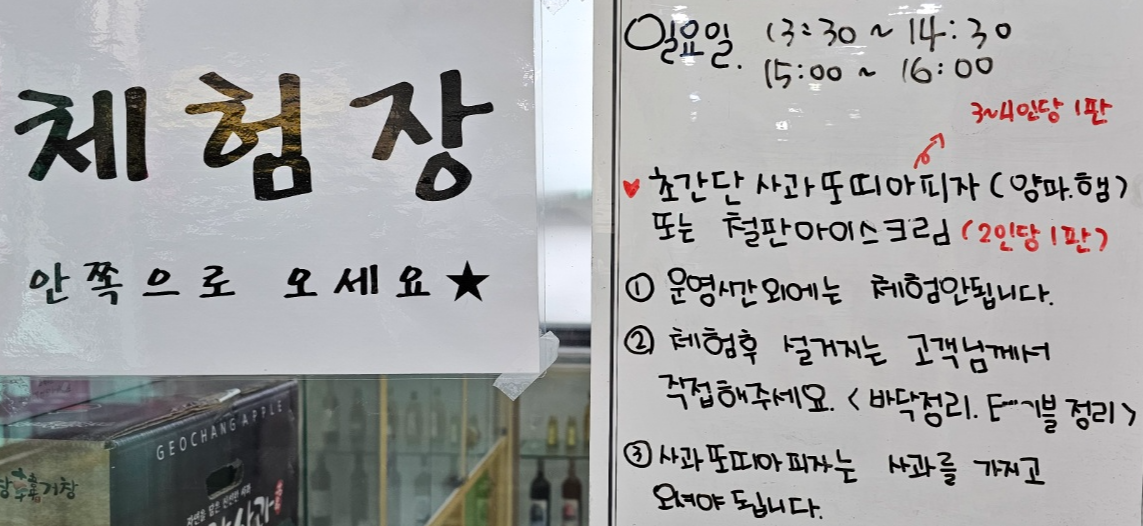 체험장
안쪽으로 오세요★
GEOCHANG APPLE
거창
자연을 담은 신선한 사과
사과
일요일. 13:30 ~ 14:30
15:00 ~ 16:00
3~4인당 1판
♥ 초간단 사과또띠아피자 (양파.햄)
또는 철판아이스크림 (2인당 1판)
① 운영시간 외에는 체험안됩니다.
② 체험후 설거지는 고객님께서
직접해주세요. <바닥정리. 테이블 정리>
③ 사과또띠아피자는 사과를 가지고
오셔야 됩니다.